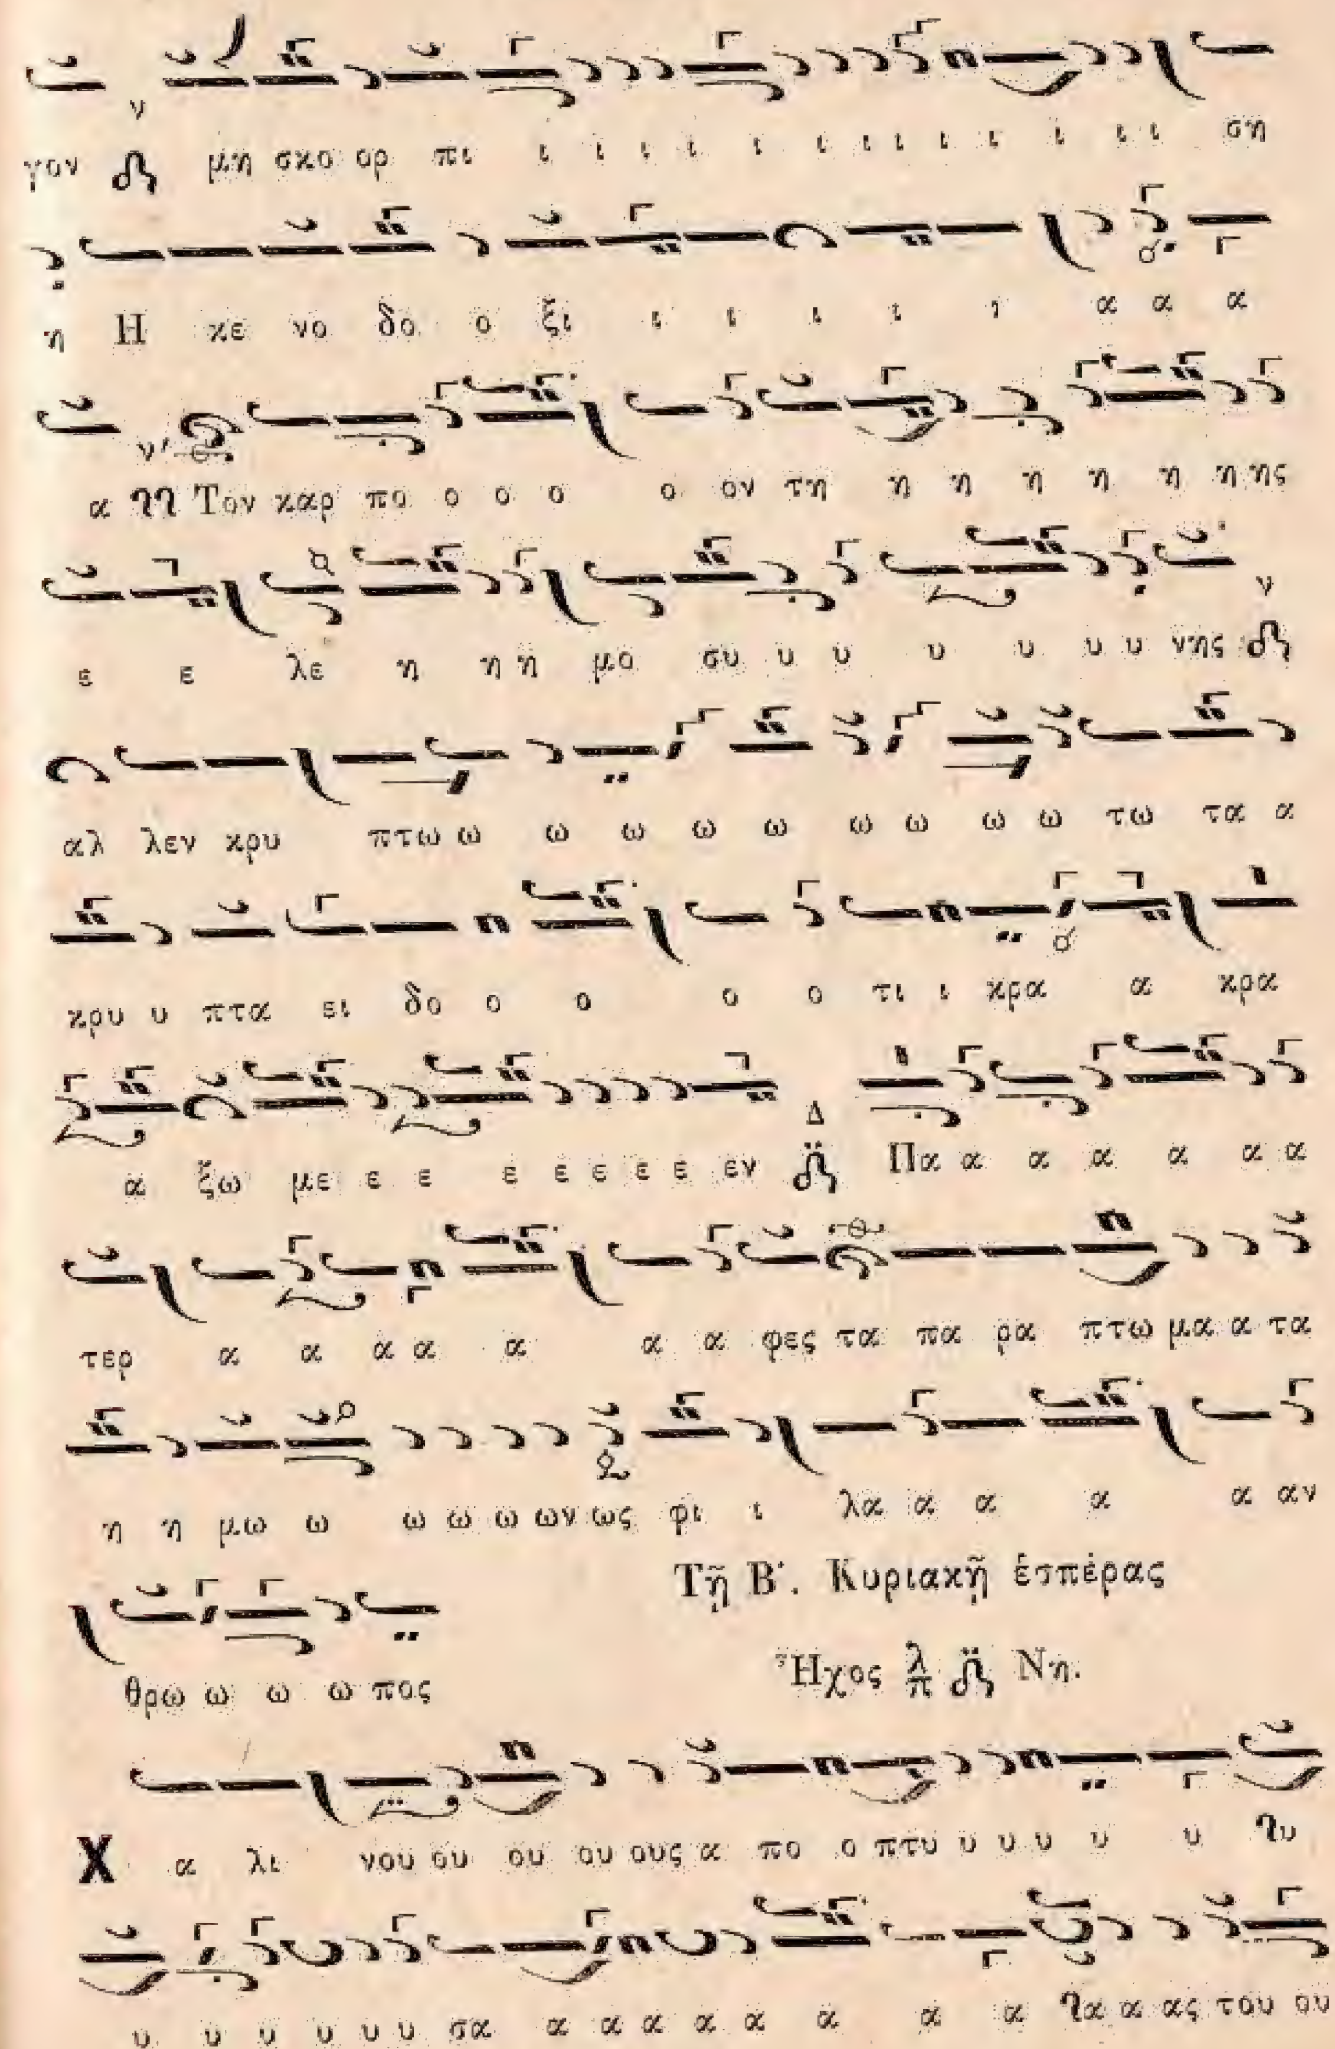 γον μη σκο ορ πι ι ι ι ι ι ι ι ι ι ι ι ι ι ση
η Η κε νο δο ο ξι ι ι ι ι ι α α α
α Τον καρ πο ο ο ο ο ον τη η η η η η η ης
ε ε λε η η η μο συ υ υ υ υ υ υ νης
αλ λεν κρυ πτω ω ω ω ω ω ω ω ω ω τω τα α
κρυ υ πτα ει δο ο ο ο ο τι ι κρα α κρα
α ξω με ε ε ε ε ε ε ε εν Δ Πα α α α α α α
τερ α α α α α α α φες τα πα ρα πτω μα α τα
η η μω ω ω ω ω ων ως φι ι λα α α α α αν
Τῇ Β΄. Κυριακῇ ἑσπέρας
θρω ω ω ω πος
Ἦχος λ π Νη.
Χ α λι νου ου ου ου ους α πο ο πτυ υ υ υ υ υ
υ υ υ υ υ υ σα α α α α α α α α α ας του ου